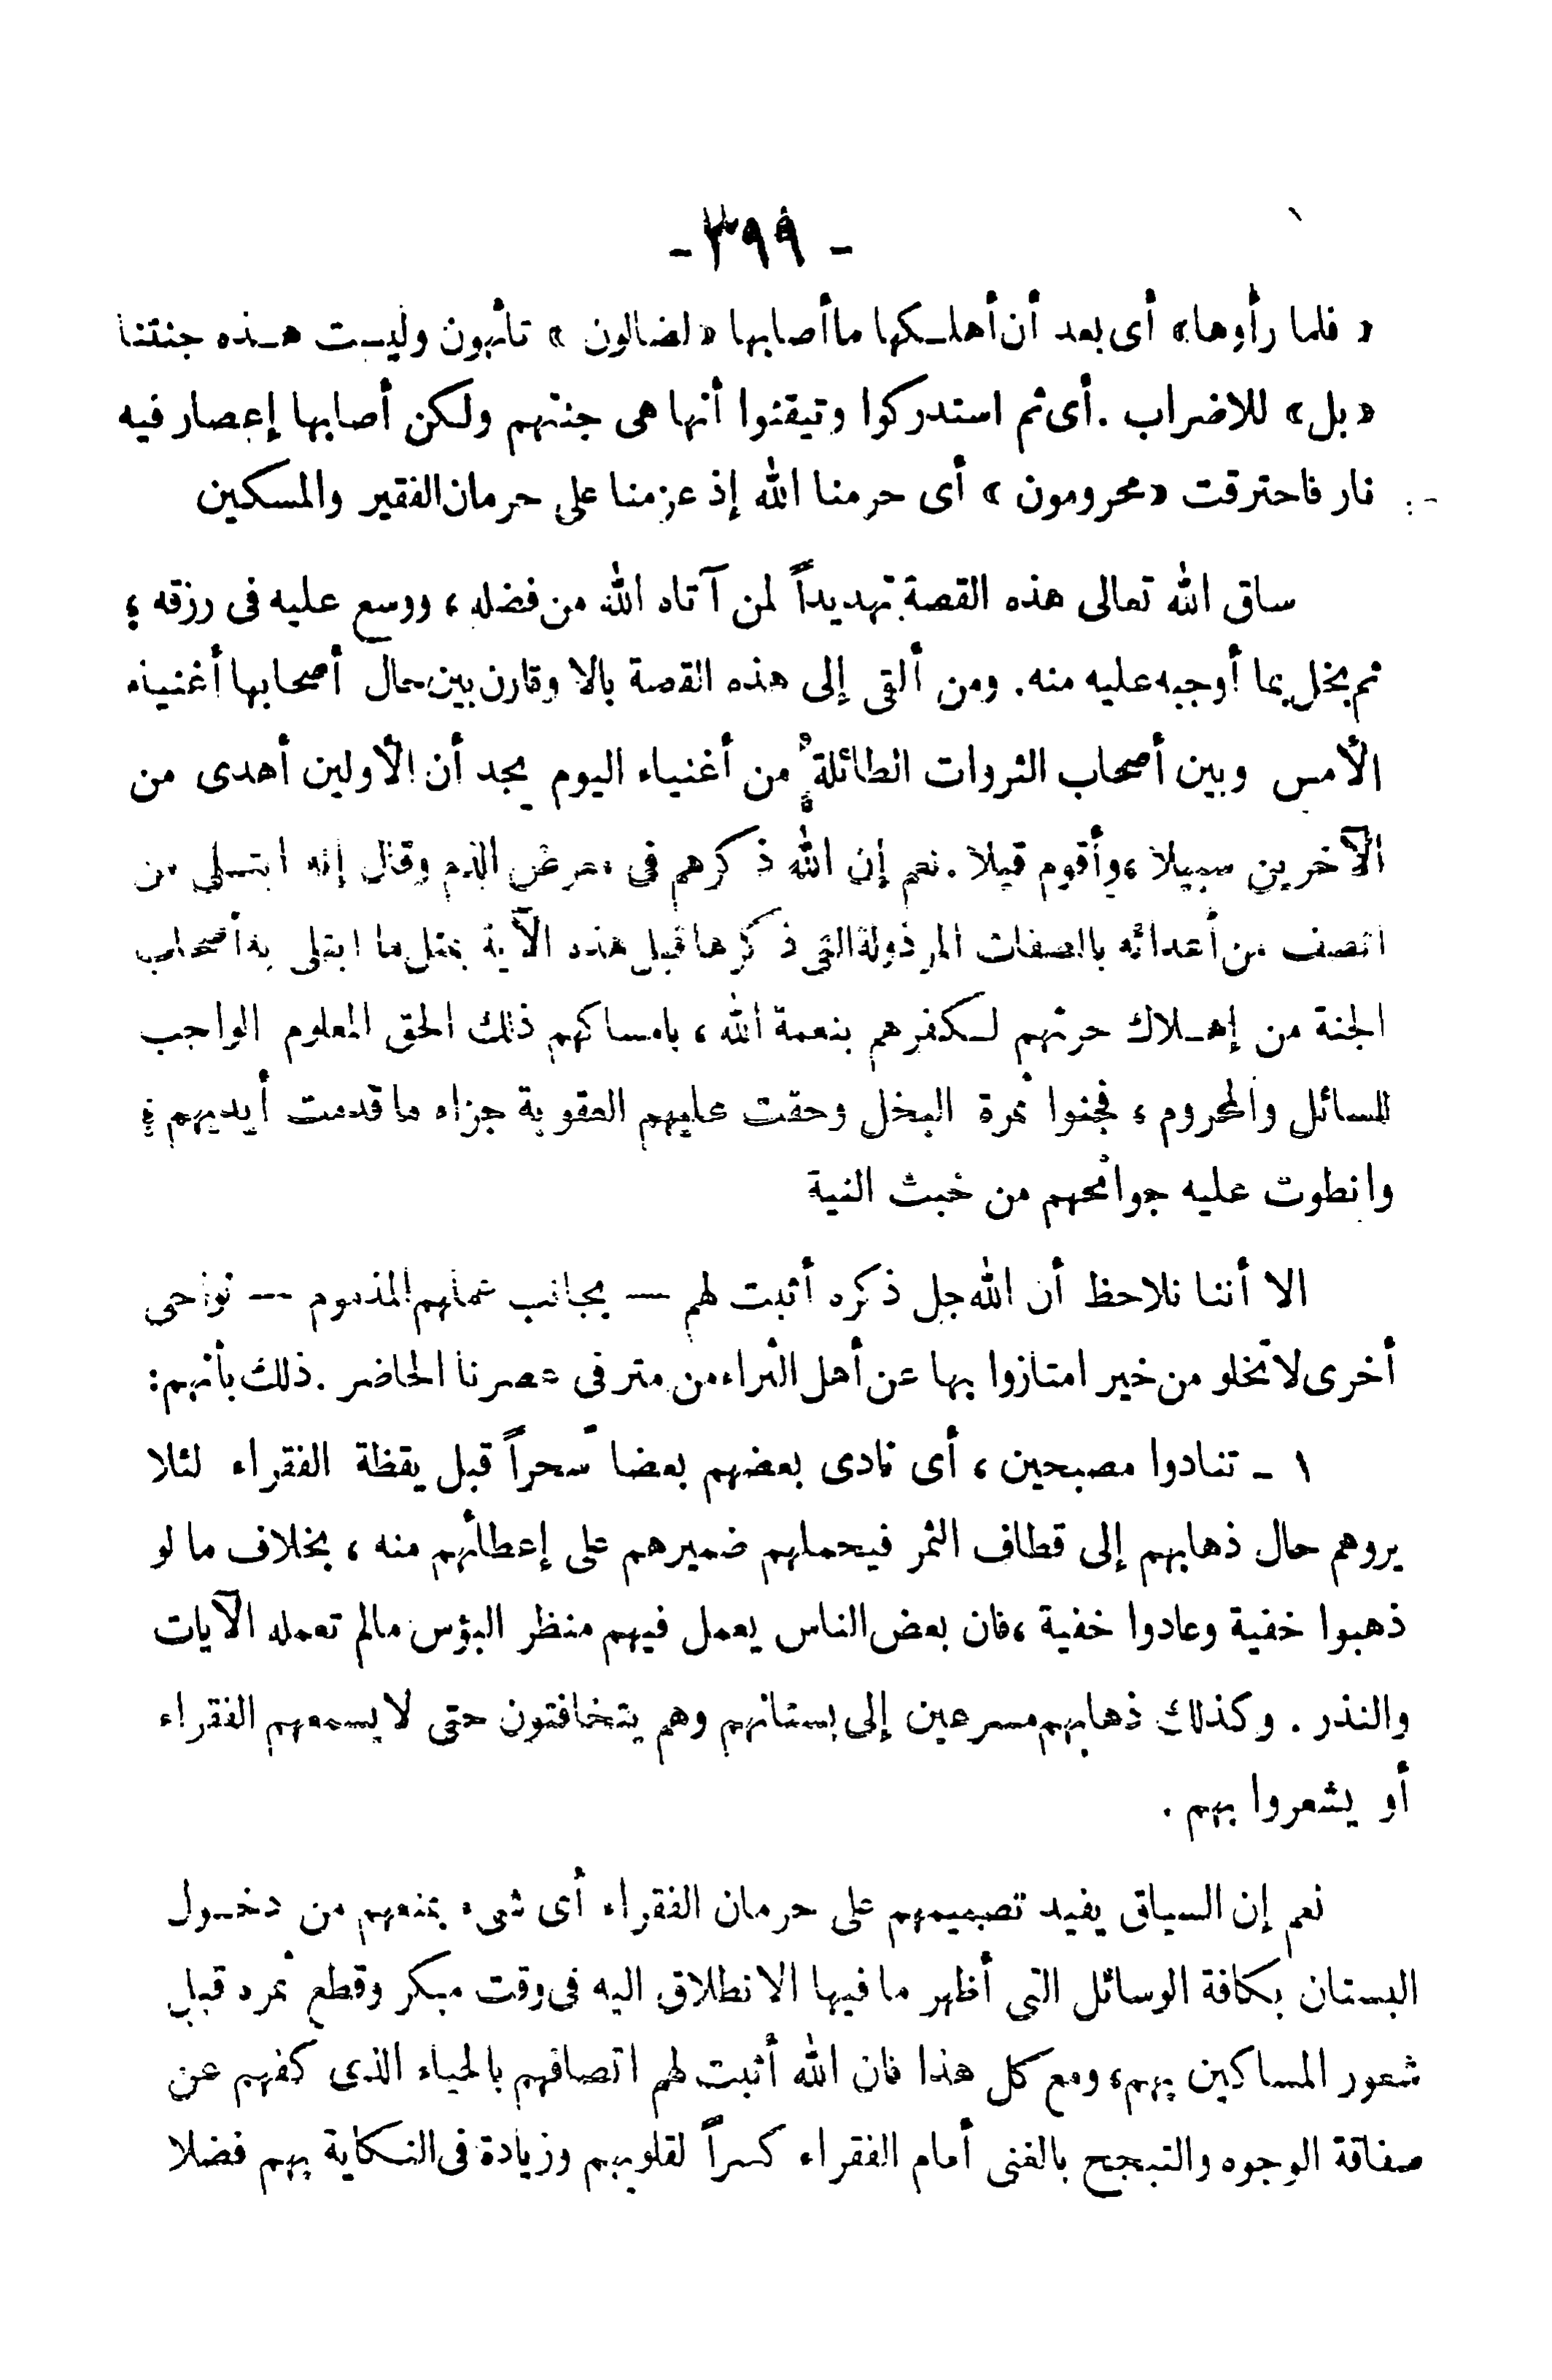 - ٣٩٩ -
« فلما رأوها» أى بعد أن أهلكها ما أصابها «لضالون » تائهون وليست هذه جنتنا
«بل» للاضراب . أى ثم استدركوا وتيقنوا أنها هى جنتهم ولكن أصابها إعصار فيه
نار فاحترقت «محرومون » أى حرمنا الله إذ عزمنا على حرمان الفقير والمسكين
ساق الله تعالى هذه القصة تهديداً لمن آتاه الله من فضله ، ووسع عليه فى رزقه ؛
ثم بخل بما أوجبه عليه منه. ومن ألقى إلى هذه القصة بالا وقارن بين حال أصحابها أغنياء
الأمس وبين أصحاب الثروات الطائلة من أغنياء اليوم يجد أن الأولين أهدى من
الآخرين سبيلا ، وأقوم قيلا . نعم إن الله ذكرهم فى معرض الذم وقال إنه ابتلى من
اتصف من أعدائه بالصفات المرذولة التى ذكرها قبل هذه الآية بمثل ما ابتلى به أصحاب
الجنة من إهلاك حرثهم لكفرهم بنعمة الله ، بامساكهم ذلك الحق المعلوم الواجب
للسائل والمحروم ، فجنوا ثمرة البخل وحقت عليهم العقوبة جزاء ما قدمت أيديهم ؛
وانطوت عليه جوانحهم من خبث النية
الا أننا نلاحظ أن الله جل ذكره أثبت لهم — بجانب عملهم المذموم — نواحى
أخرى لا تخلو من خير امتازوا بها عن أهل الثراء من مترفى عصرنا الحاضر . ذلك بأنهم:
١ - تنادوا مصبحين ، أى نادى بعضهم بعضا سحراً قبل يقظة الفقراء لئلا
يروهم حال ذهابهم إلى قطاف الثمر فيحملهم ضميرهم على إعطائهم منه ، بخلاف ما لو
ذهبوا خفية وعادوا خفية ، فان بعض الناس يعمل فيهم منظر البؤس مالم تعمله الآيات
والنذر . وكذلك ذهابهم مسرعين إلى بستانهم وهم يتخافتون حتى لا يسمعهم الفقراء
أو يشعروا بهم .
نعم إن السياق يفيد تصميمهم على حرمان الفقراء أى شىء بمنعهم من دخول
البستان بكافة الوسائل التى أظهر ما فيها الانطلاق اليه فى وقت مبكر وقطع ثمره قبل
شعور المساكين بهم، ومع كل هذا فان الله أثبت لهم اتصافهم بالحياء الذى كفهم عن
صفاقة الوجوه والتبجح بالغنى أمام الفقراء كسراً لقلوبهم وزيادة فى النكاية بهم فضلا